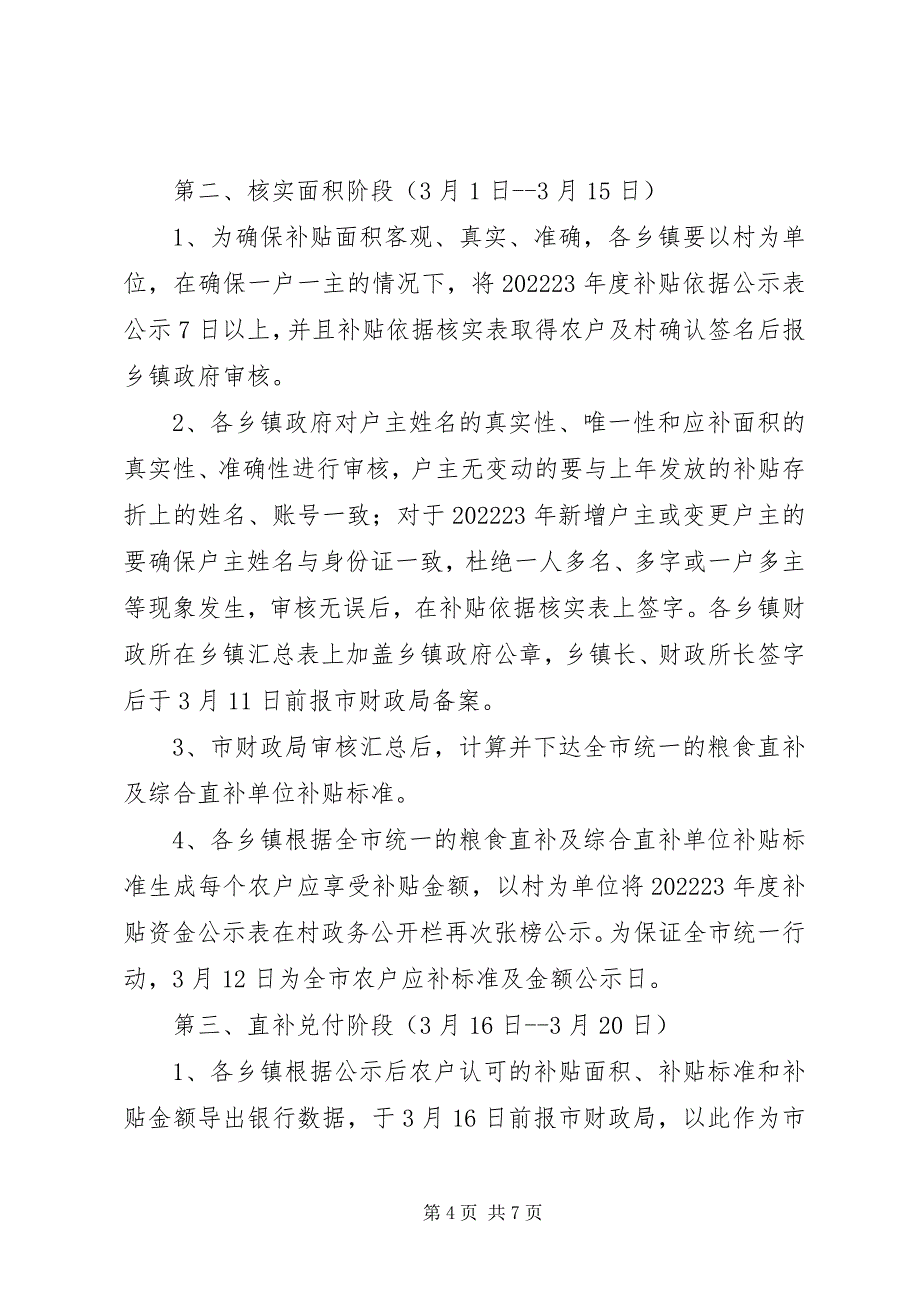 第二、核实面积阶段（3月1日--3月15日）
1、为确保补贴面积客观、真实、准确，各乡镇要以村为单
位，在确保一户一主的情况下，将202223年度补贴依据公示表
公示7日以上，并且补贴依据核实表取得农户及村确认签名后报
乡镇政府审核。
2、各乡镇政府对户主姓名的真实性、唯一性和应补面积的
真实性、准确性进行审核，户主无变动的要与上年发放的补贴存
折上的姓名、账号一致；对于202223年新增户主或变更户主的
要确保户主姓名与身份证一致，杜绝一人多名、多字或一户多主
等现象发生，审核无误后，在补贴依据核实表上签字。各乡镇财
政所在乡镇汇总表上加盖乡镇政府公章，乡镇长、财政所长签字
后于3月11日前报市财政局备案。
3、市财政局审核汇总后，计算并下达全市统一的粮食直补
及综合直补单位补贴标准。
4、各乡镇根据全市统一的粮食直补及综合直补单位补贴标
准生成每个农户应享受补贴金额，以村为单位将202223年度补
贴资金公示表在村政务公开栏再次张榜公示。为保证全市统一行
动，3月12日为全市农户应补标准及金额公示日。
第三、直补兑付阶段（3月16日--3月20日）
1、各乡镇根据公示后农户认可的补贴面积、补贴标准和补
贴金额导出银行数据，于3月16日前报市财政局，以此作为市
第4页 共7页